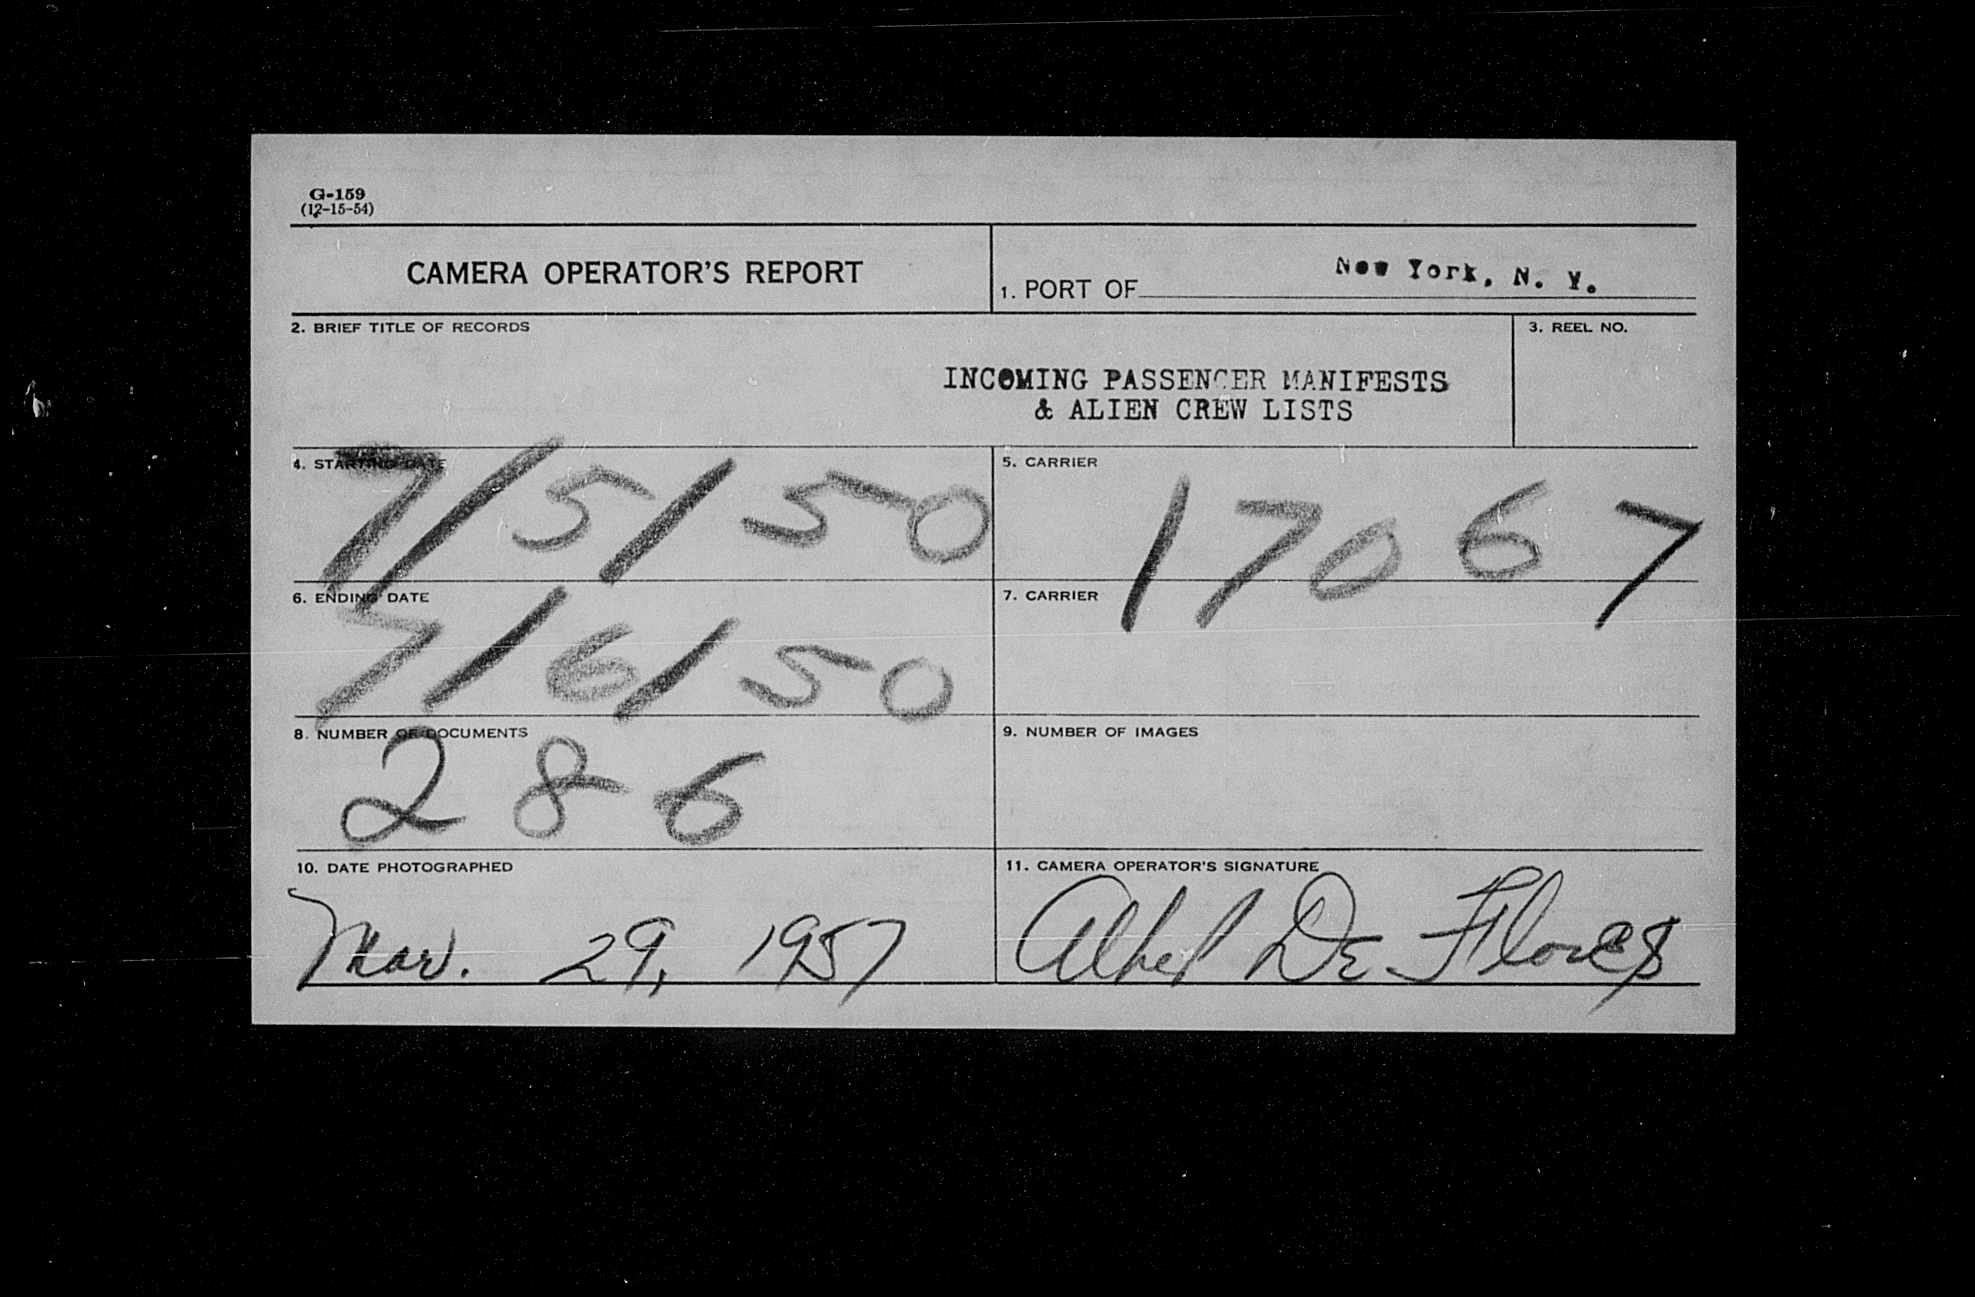 G-159
(12-15-54)
CAMERA OPERATOR'S REPORT
1. PORT OF New York, N. Y.
2. BRIEF TITLE OF RECORDS
INCOMING PASSENGER MANIFESTS
& ALIEN CREW LISTS
3. REEL NO.
4. STARTING DATE
7/5/50
5. CARRIER
17067
6. ENDING DATE
7/6/50
7. CARRIER
8. NUMBER OF DOCUMENTS
286
9. NUMBER OF IMAGES
10. DATE PHOTOGRAPHED
Mar. 29, 1957
11. CAMERA OPERATOR'S SIGNATURE
De Flores